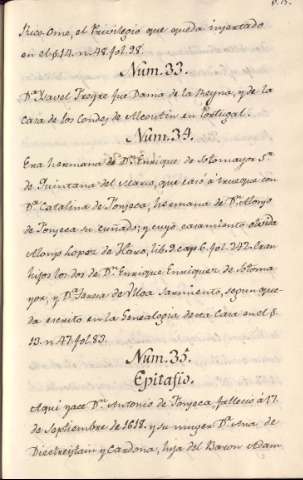 Rico Ome, el Privilegio que queda injertado
en el §.14. n. 48. fol. 98.
Num. 33.
Dª. Ysavel Freyre fue Dama de la Reyna, y de la
Casa de los Condes de Alcoutin en Portugal.
Num. 34.
Era hermana de Dn. Enrique de Sotomayor Sr.
de Quintana del Marco, que casó à trueque con
Dª. Catalina de Fonseca, hermana de Dn. Alonso
de Fonseca su cuñado; y cuyo casamiento olvida
Alonso Lopez de Haro, lib. 9. cap. 6. fol. 242. Eran
hijos los dos de Dn. Enrique Enriquez de Sotoma
yor, y Dª. Juana de Ulloa Sarmiento, segun que-
da escrito en la Genealogia desta Casa en el §.
13. n. 47. fol. 83.
Num. 35.
Epitafio.
Aqui yace Dn. Antonio de Fonseca, falleció à 17.
de Septiembre de 1618. y su muger Dª. Ana de
Dietreystain y Cardona, hija del Baron Adam.